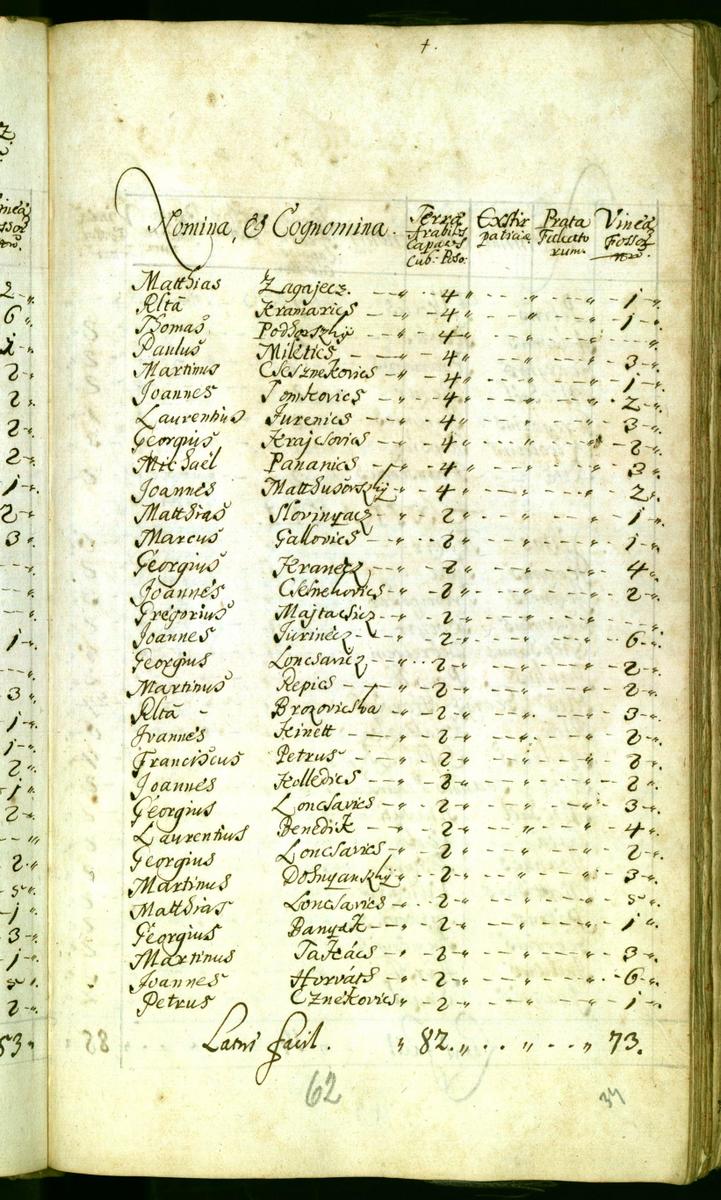 4.
Nomina, & Cognomina. Terrae Arabiles Capaces Cub: Poso: Exstirpatitiae Prata Falcatorum. Vineae Fossor
Matthias Zagajecz. — „ — 4 „ — „ — „ — 1 „
Rltã Kramarics — „ — 4 „ — „ — „ — 1 „
Thomas Podhorszky — „ — 4 „ — „ — „ — „
Paulus Miletics — „ — 4 „ — „ — „ — 3 „
Martinus Csesznekovics — „ — 4 „ — „ — „ — 1 „
Joannes Tomkovics — „ — 4 „ — „ — „ — 2 „
Laurentius Jurenics — „ — 4 „ — „ — „ — 3 „
Georgius Krajcsovics — „ — 4 „ — „ — „ — 2 „
Michaël Pananics — „ — 4 „ — „ — „ — 3 „
Joannes Matthusovszky — „ — 4 „ — „ — „ — 2 „
Matthias Slovinyacz — „ — 2 „ — „ — „ — 1 „
Marcus Gallovics — „ — 2 „ — „ — „ — 1 „
Georgius Kranecz — „ — 2 „ — „ — „ — 4 „
Joannes Csesnekovics — „ — 2 „ — „ — „ — 2 „
Gregorius Majtacsicz — „ — 2 „ — „ — „ — „
Joannes Jurinecz — „ — 2 „ — „ — „ — 6 „
Georgius Loncsavicz — „ — 2 „ — „ — „ — 2 „
Martinus Repics — „ — 2 „ — „ — „ — 2 „
Rltã - Brozovicska — „ — 2 „ — „ — „ — 3 „
Joannes Kinett — „ — 2 „ — „ — „ — 2 „
Franciscus Petrus — „ — 2 „ — „ — „ — 2 „
Joannes Kolledics — „ — 2 „ — „ — „ — 2 „
Georgius Loncsavics — „ — 2 „ — „ — „ — 3 „
Laurentius Benedik — „ — 2 „ — „ — „ — 4 „
Georgius Loncsavics — „ — 2 „ — „ — „ — 2 „
Martinus Dohnyanszky — „ — 2 „ — „ — „ — 3 „
Matthias Loncsavics — „ — 2 „ — „ — „ — 5 „
Georgius Banyak — „ — 2 „ — „ — „ — 1 „
Martinus Takács — „ — 2 „ — „ — „ — 3 „
Joannes Horváth — „ — 2 „ — „ — „ — 6 „
Petrus Cznekovics „ — 2 „ — „ — „ — 1 „
Latus facit. „ 82. „ . . „ . . „ 73.
62
34